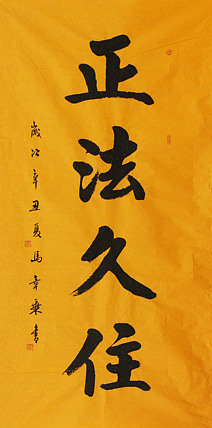 正法久住
歲次辛丑夏馬幸乘書